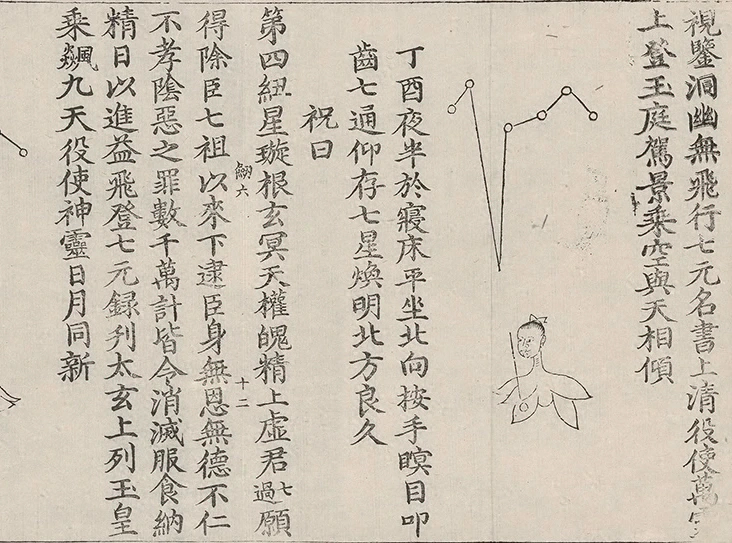 視鑒洞幽無飛行七元名書上清役使萬
上登玉庭駕景乘空與天相傾
丁酉夜半於寢床平坐北向按手瞑目叩
齒七通仰存七星煥明北方良久
祝曰
第四紐星璇根玄冥天權魄精上虛君七過願
㓜六
十二
得除臣七祖以來下逮臣身無恩無德不仁
不孝陰惡之罪數千萬計皆令消滅服食納
精日以進益飛登七元録刋太玄上列玉皇
乘飈九天役使神靈日月同新